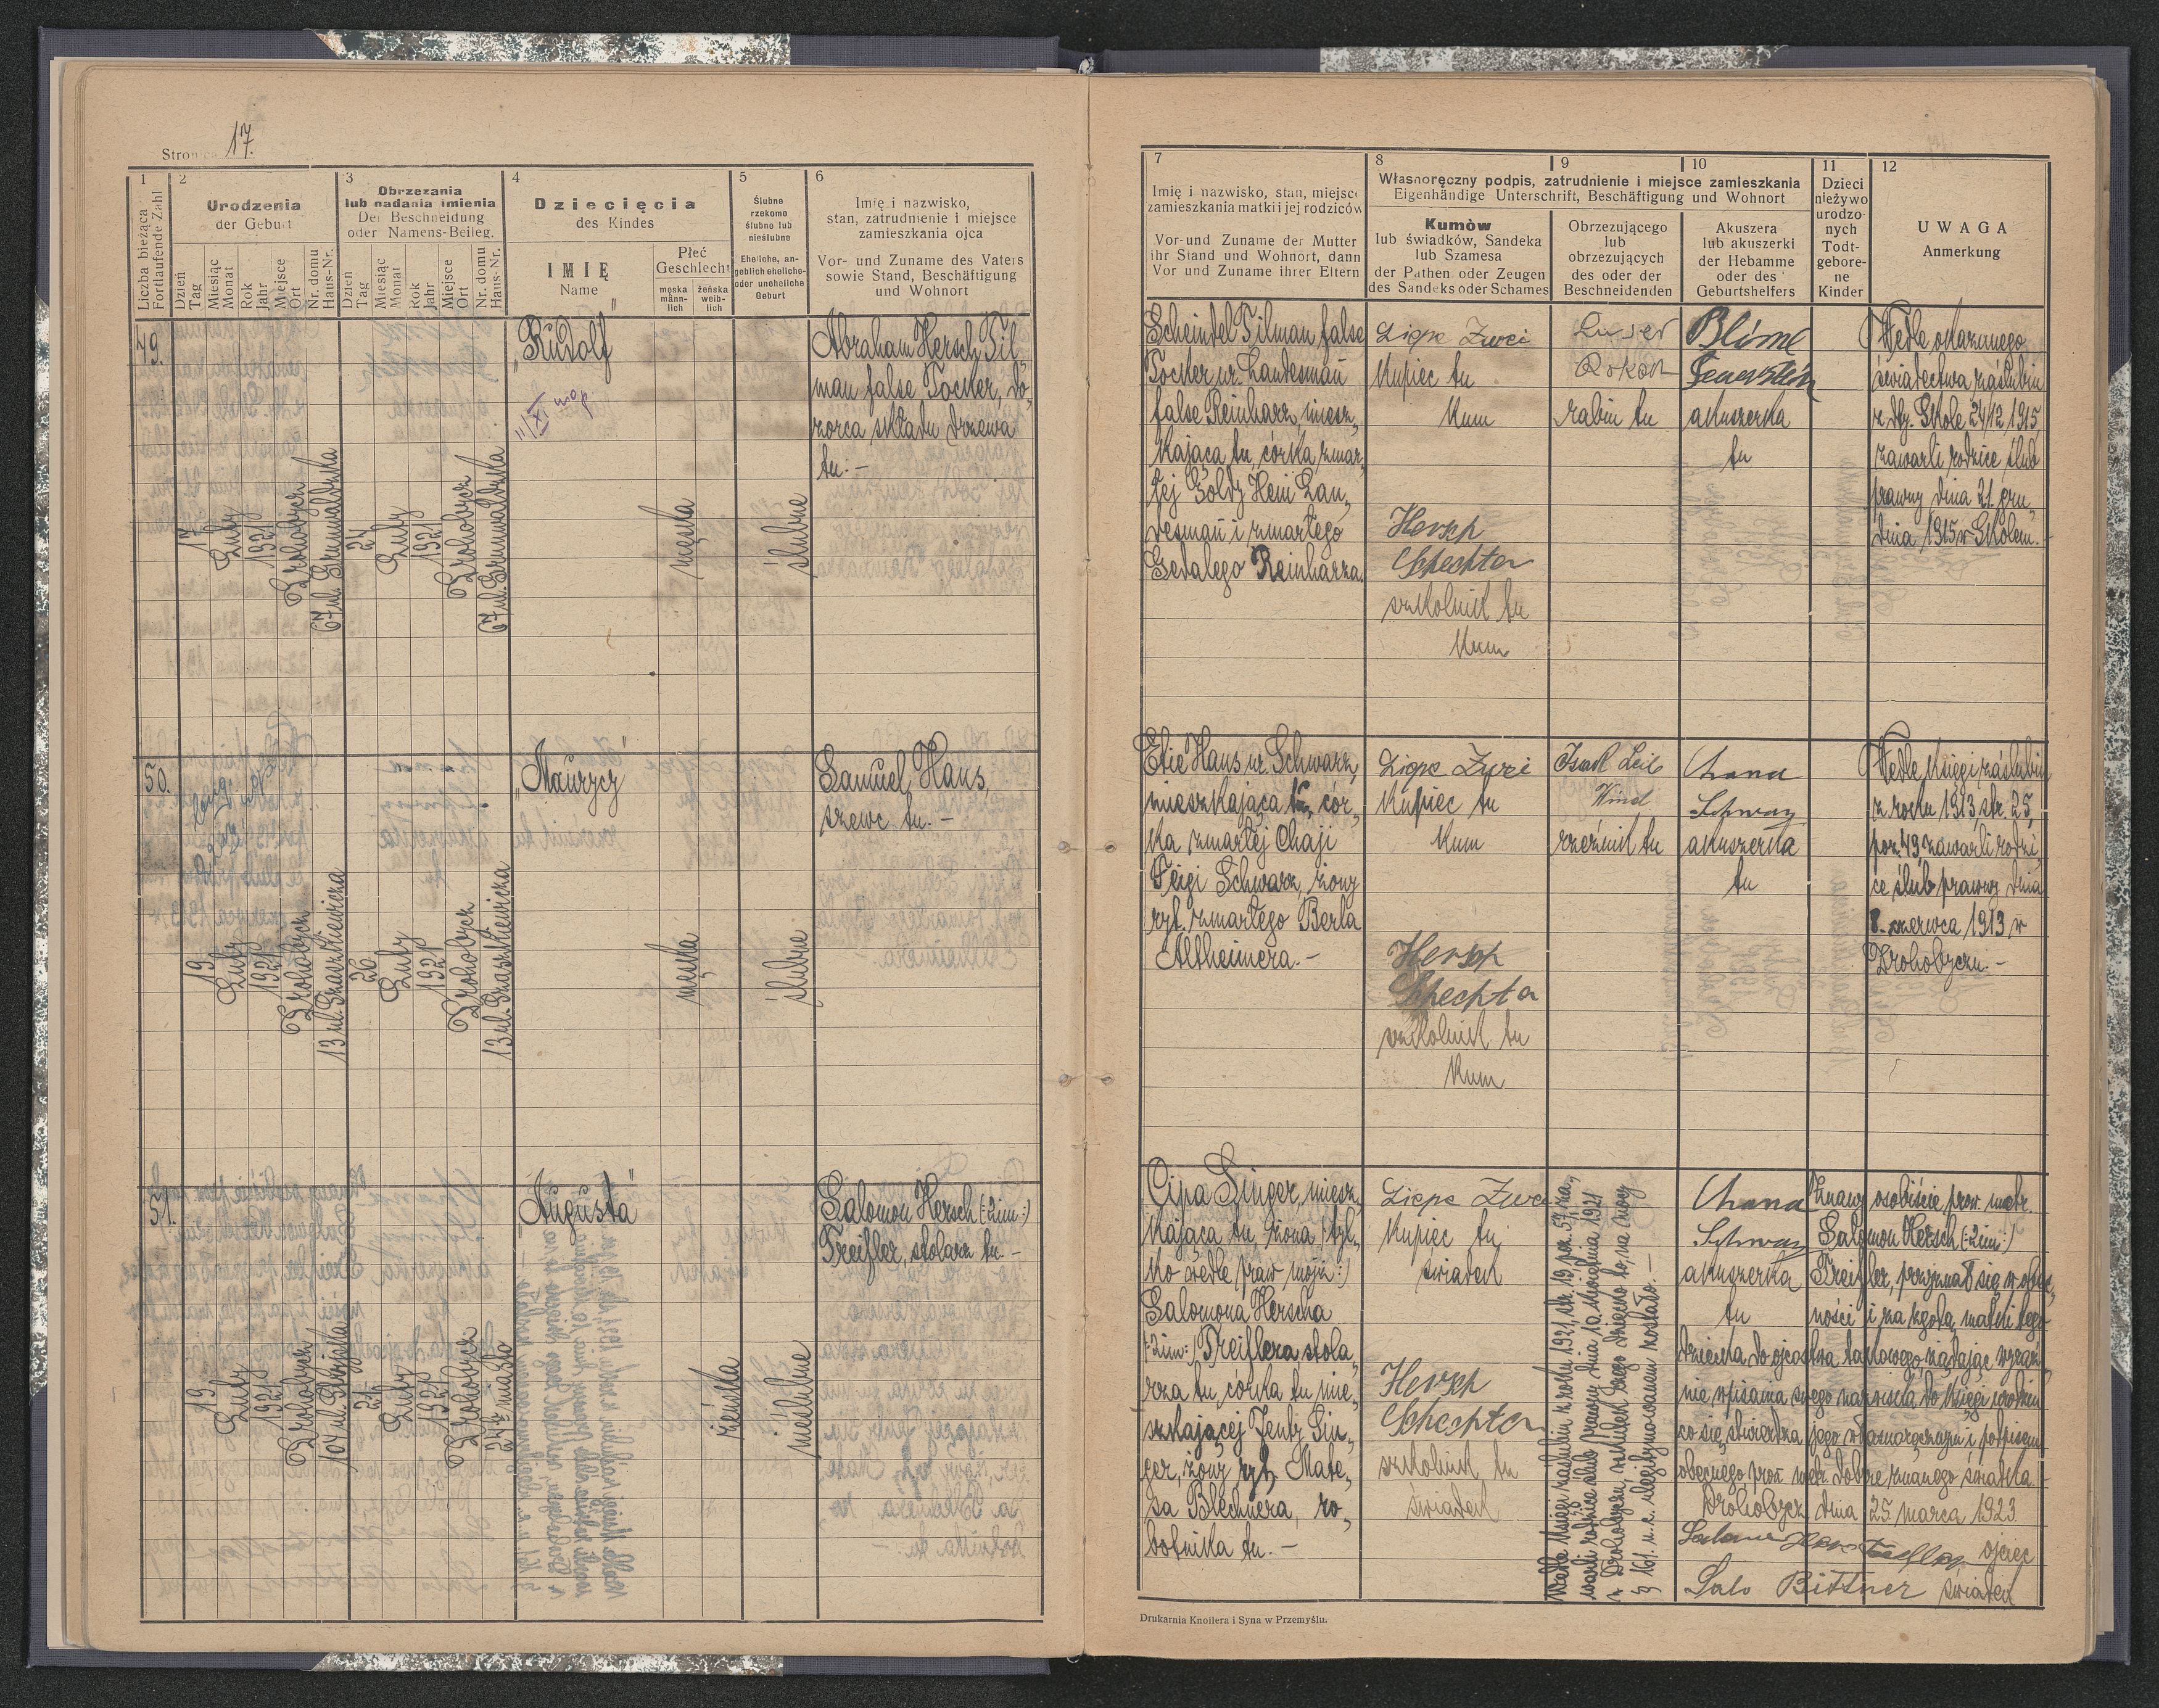 Stronica 17.
1
Liczba bieżąca
Fortlaufende Zahl
2
Urodzenia
der Geburt
Dzień
Tag
Miesiąc
Monat
Rok
Jahr
Miejsce
Ort
Nr. domu
Haus-Nr.
3
Obrzezania
lub nadania imienia
Der Beschneidung
oder Namens-Beileg.
Dzień
Tag
Miesiąc
Monat
Rok
Jahr
Miejsce
Ort
Nr. domu
Haus-Nr.
4
Dziecięcia
des Kindes
IMIĘ
Name
Płeć
Geschlecht
męska
männ-
lich
żeńska
weib-
lich
5
Ślubne
rzekomo
ślubne lub
nieślubne
Eheliche, an-
geblich eheliche-
oder uneheliche
Geburt
6
Imię i nazwisko,
stan, zatrudnienie i miejsce
zamieszkania ojca
Vor- und Zuname des Vaters
sowie Stand, Beschäftigung
und Wohnort
49.
17
Luty
1921
Drohobycz
67 ul. Grunwaldzka
24
Luty
1921
Drohobycz
67 ul. Grunwaldzka
„Rudolf”
męska
ślubne
Abraham Hersch Til„
man false Tocker, do„
zorca składu drzewa
tu.-
50.
19
Luty
1921
Drohobycz
13 ul. Szaszkiewicza
26
Luty
1921
Drohobycz
13 ul. Szaszkiewicza
„Maurycy”
męska
ślubne
Samuel Haus,
szewc tu.-
51.
19
Luty
1921
Drohobycz
104 ul. Stryjska
Luty
1921
Drohobycz
„Augusta”
żeńska
nieślubne
Salomon Hersch (:2im:)
Treifler, stolarz tu.-
7
Imię i nazwisko, stan, miejsce
zamieszkania matki i jej rodziców
Vor-und Zuname der Mutter
ihr Stand und Wohnort, dann
Vor und Zuname ihrer Eltern
8
9
10
Własnoręczny podpis, zatrudnienie i miejsce zamieszkania
Eigenhändige Unterschrift, Beschäftigung und Wohnort
Kumòw
lub świadków, Sandeka
lub Szamesa
der Pathen oder Zeugen
des Sandeks oder Schames
Obrzezującego
lub
obrzezujących
des oder der
Beschneidenden
Akuszera
lub akuszerki
der Hebamme
oder des
Geburtshelfers
11
Dzieci
nieżywo
urodzo-
nych
Todt-
gebore-
ne
Kinder
12
UWAGA
Anmerkung
Scheindel Tilman false
Tocker ur. Landesman
false Reinharz, miesz„
kająca tu, córka zmar„
łej Goldy Heni Lan„
desman i zmarłego
Gedalego Reinharza.
Lippe Zwei
Kupiec tu
Kum
Hersch
Schechter
szkolnik tu
Kum
rabin tu
Blime
Feuerstein
akuszerka
tu
Wedle okazanego
świadectwa zaślubin
z dtg. Skole 24/12 1915
zawarli rodzice ślub
prawny dnia 21. gru„
dnia 1915 w Skolem.-
Etie Haus ur. Schwarz,
mieszkająca tu, cór„
ka zmarłej Chaji
Feigi Schwarz, żony
ryt. zmarłego Berla
Altheimera.-
Lippe Zwei
Kupiec tu
Kum
Hersch
Schechter
szkolnik tu
Kum
rzeźnik tu
Chana
Schwarz
akuszerka
tu
Wedle Księgi zaślubin
z roku 1913, str. 25,
poz. 49 zawarli rodzi„
ce ślub prawny dnia
8. czerwca 1913 w
Drohobyczu.-
Cipa Singer, miesz„
kająca tu, żona (tyl„
ko wedle praw mojż:)
Salomona Herscha
(:2im:) Treiflera stola„
rza tu, córka tu mie„
szkającej Jenty Sin„
ger, żony ryt. Mate„
sa Blechnera, ro„
botnika tu.-
Lippe Zwei
Kupiec tu
świadek
Hersch
Schechter
szkolnik tu
świadek
Wedle księgi zaślubin z roku 1921, str. 19 poz. 57 za„
warli rodzice ślub prawny dnia
w Drohobyczu, wskutek czego dziecko to, na mocy
§ 161. u. c. ulegitymowanem zostało.-
Chana
Schwarz
akuszerka
tu
Znany osobiście prow. metr.
Salomon Hersch (:2im:)
Treifler, przyznał się w obec„
ności i za zgodą matki tego
dziecka do ojcostwa takowego, żądając wyraź„
nie wpisania swego nazwiska do księgi urodzin
co się stwierdza jego własnoręcznym podpisem
obecnego prow. metr. dobrze znanego świadka.
Drohobycz dnia 25 marca 1923
ojciec
Salo Bittner świadek
Drukarnia Knollera i Syna w Przemyślu.